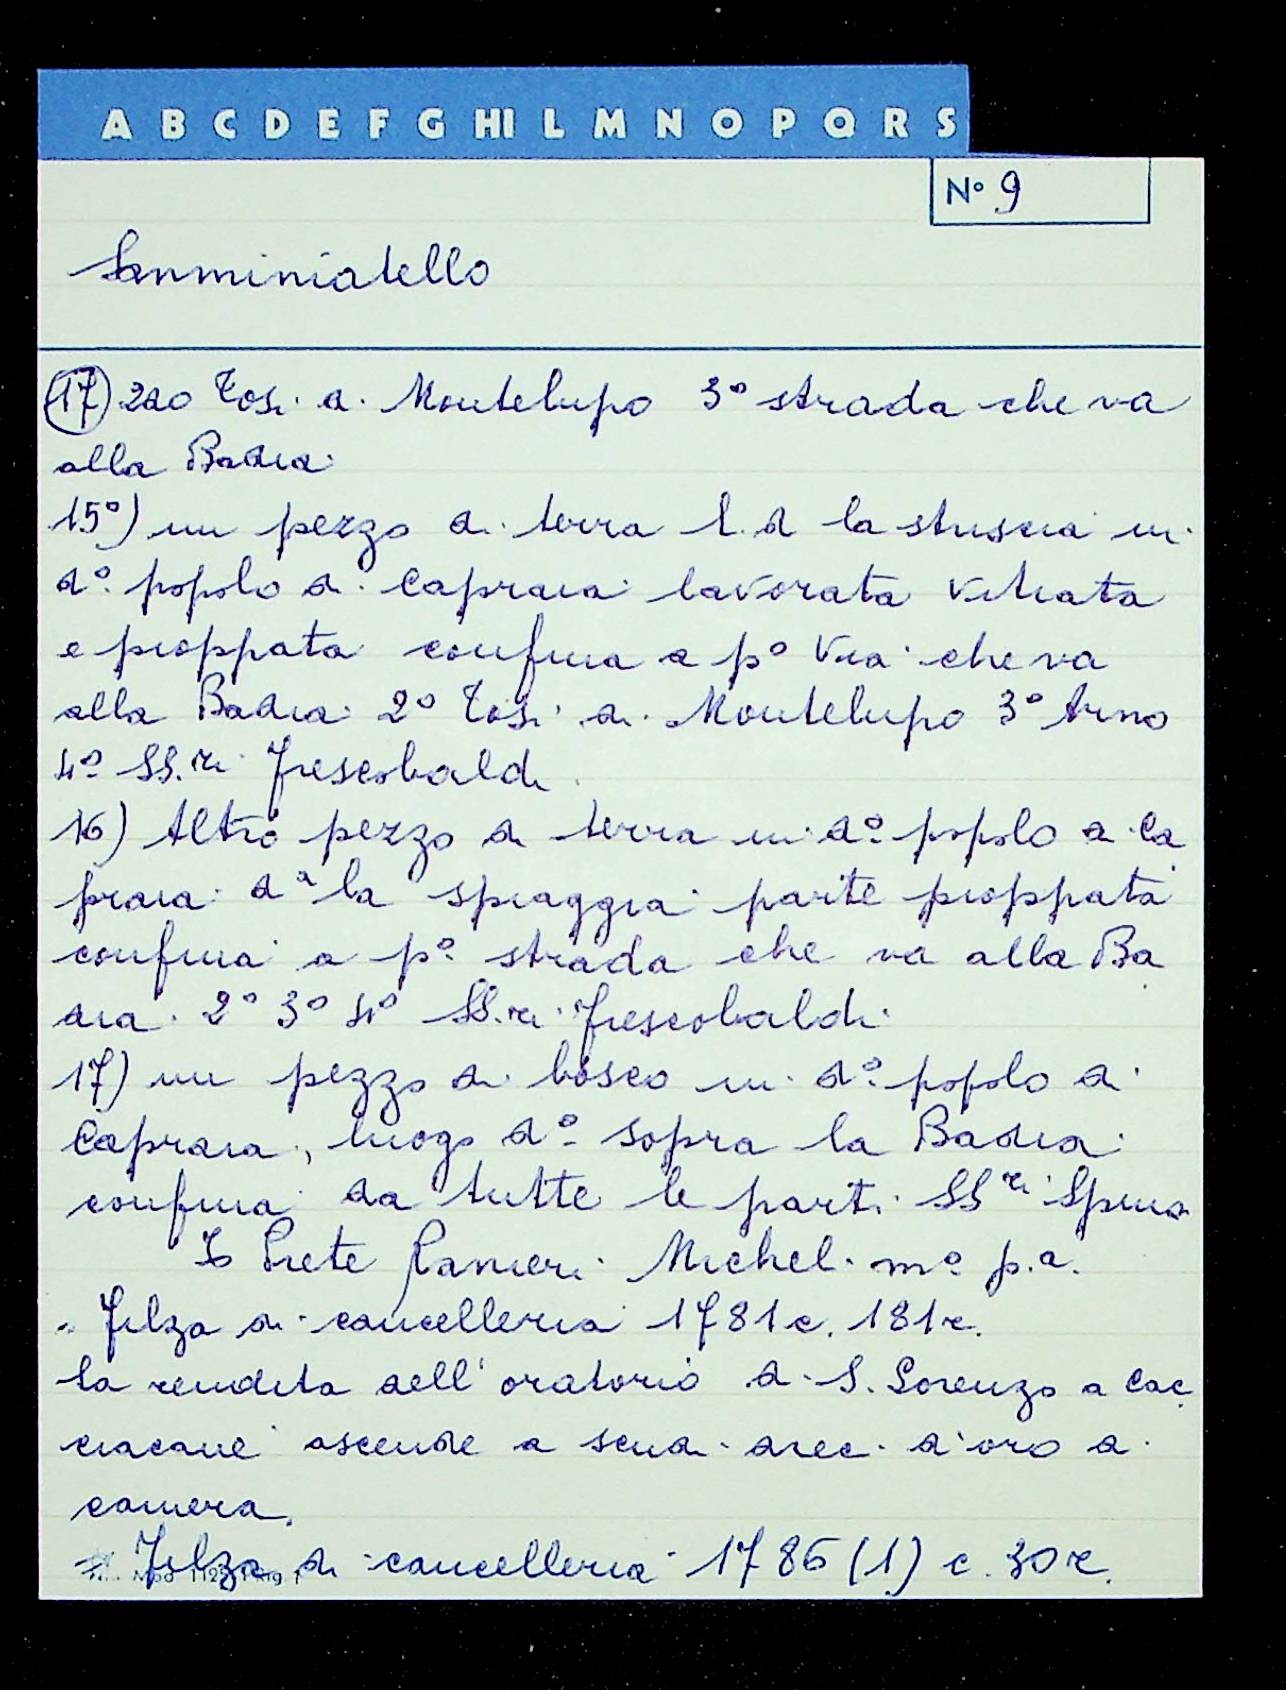 A B C D E F G HI L M N O P Q R S
Nº 9
Samminiatello
(17) 2do Tosi di Montelupo 3º strada che va
alla Badia.
15º) un pezzo di terra l.d la striscia in
dº. popolo di Capraia lavorata vitiata
e pioppata confina a pº via che va
alla Badia 2º Tosi di Montelupo 3º Arno
4º SS.ri Frescobaldi
16) Altro pezzo di terra in dº popolo di Ca
praia dª la spiaggia parte pioppata
confina a pº strada che va alla Ba
dia. 2º 3º 4º SS.ri Frescobaldi.
17) un pezzo di bosco in dº. popolo di
Capraia, luogo dº sopra la Badia
confina da tutte le parti SSri Spina
Io Prete Ranieri Micheli mº p.a.
. Filza di cancelleria 1781 c. 181r.
la rendita dell'oratorio di S. Lorenzo a Cac
ciacane ascende a scudi dieci d'oro di
camera.
Filza di cancelleria 1786 (1) c. 30r.